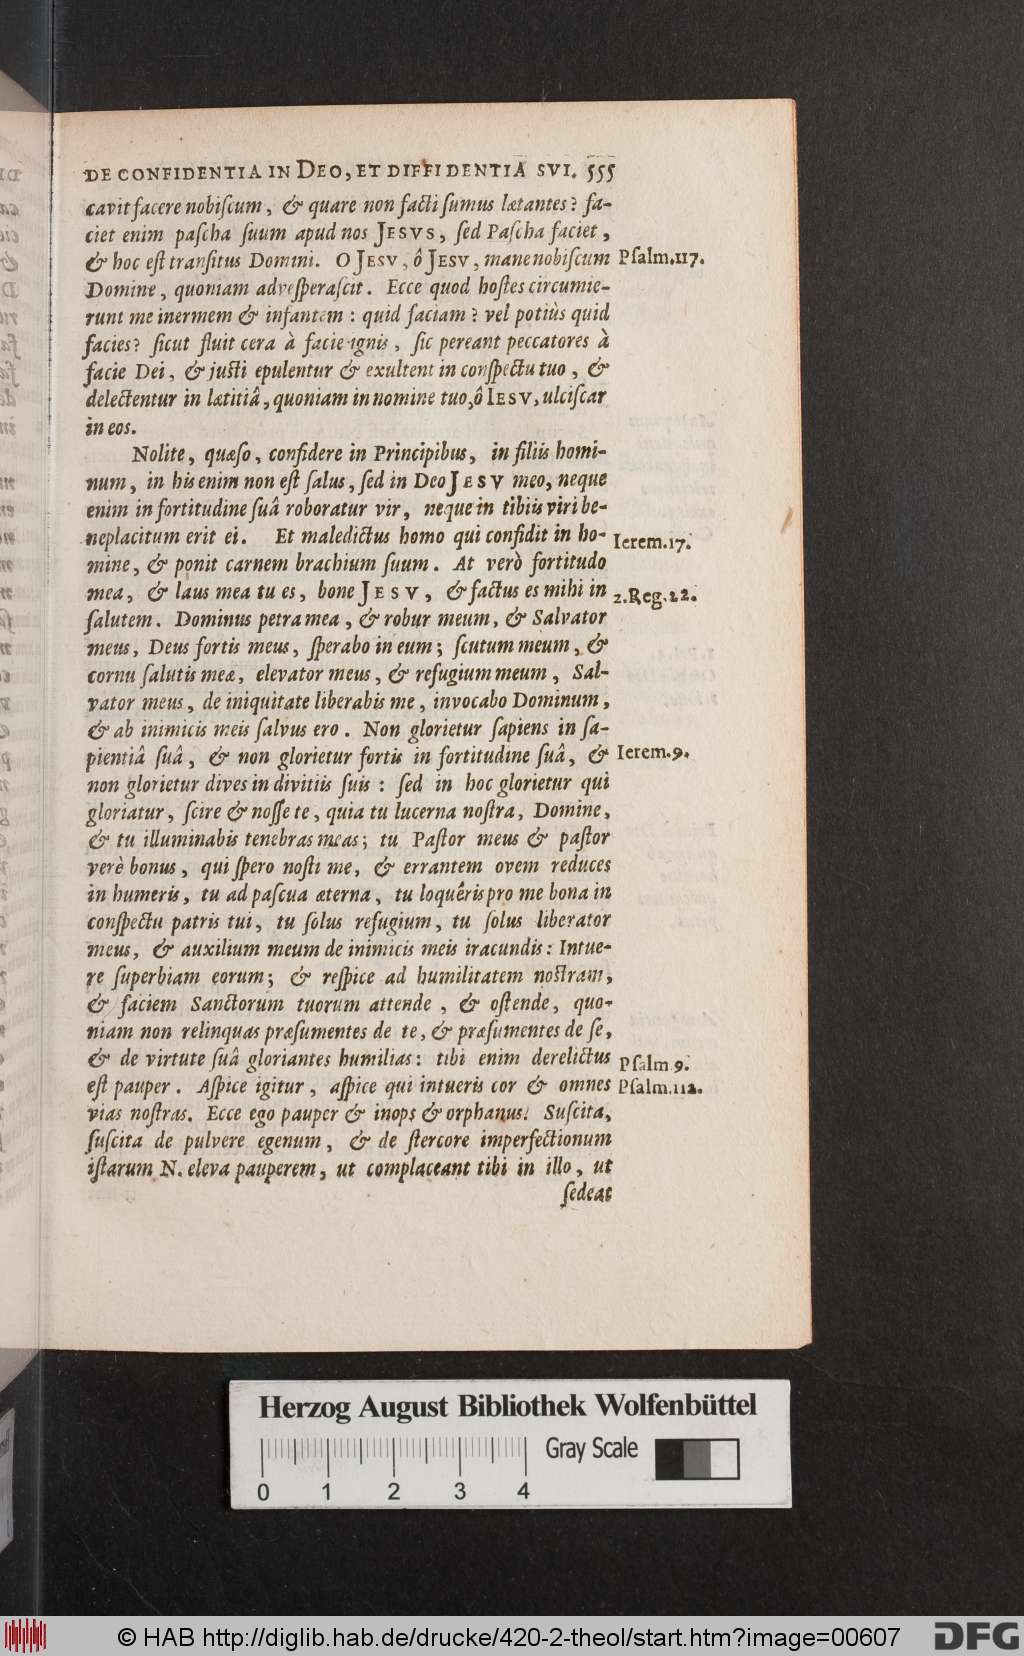 DE CONFIDENTIA IN DEO, ET DIFFIDENTIA SVI. 555
cavit facere nobiſcum, & quare non facti ſumus lætantes? fa-
ciet enim paſcha ſuum apud nos JESVS, ſed Paſcha faciet,
& hoc eſt tranſitus Domini. O JESV, ô JESV, mane nobiſcum
Psalm.117.
Domine, quoniam adveſperaſcit. Ecce quod hoſtes circumie-
runt me inermem & infantem: quid faciam? vel potiùs quid
facies? ſicut fluit cera à facie ignis, ſic pereant peccatores à
facie Dei, & juſti epulentur & exultent in conſpectu tuo, &
delectentur in lætitiâ, quoniam in nomine tuo, ô IESV, ulciſcar
in eos.
Nolite, quæſo, confidere in Principibus, in filiis homi-
num, in his enim non eſt ſalus, ſed in Deo JESV meo, neque
enim in fortitudine ſuâ roboratur vir, neque in tibiis viri be-
neplacitum erit ei. Et maledictus homo qui confidit in ho-
Ierem.17.
mine, & ponit carnem brachium ſuum. At verò fortitudo
mea, & laus mea tu es, bone JESV, & factus es mihi in
2.Reg.22.
ſalutem. Dominus petra mea, & robur meum, & Salvator
meus, Deus fortis meus, ſperabo in eum; ſcutum meum, &
cornu ſalutis meæ, elevator meus, & refugium meum, Sal-
vator meus, de iniquitate liberabis me, invocabo Dominum,
& ab inimicis meis ſalvus ero. Non glorietur ſapiens in ſa-
pientiâ ſuâ, & non glorietur fortis in fortitudine ſuâ, &
Ierem.9.
non glorietur dives in divitiis ſuis: ſed in hoc glorietur qui
gloriatur, ſcire & noſſe te, quia tu lucerna noſtra, Domine,
& tu illuminabis tenebras meas; tu Paſtor meus & paſtor
verè bonus, qui ſpero noſti me, & errantem ovem reduces
in humeris, tu ad paſcua æterna, tu loquêris pro me bona in
conſpectu patris tui, tu ſolus refugium, tu ſolus liberator
meus, & auxilium meum de inimicis meis iracundis: Intue-
re ſuperbiam eorum; & reſpice ad humilitatem noſtram,
& faciem Sanctorum tuorum attende, & oſtende, quo-
niam non relinquas præſumentes de te, & præſumentes de ſe,
& de virtute ſuâ gloriantes humilias: tibi enim derelictus
Pſalm.9.
eſt pauper. Aſpice igitur, aſpice qui intueris cor & omnes
Pſalm.112.
vias noſtras. Ecce ego pauper & inops & orphanus! Suſcita,
ſuſcita de pulvere egenum, & de ſtercore imperfectionum
iſtarum N. eleva pauperem, ut complaceant tibi in illo, ut
ſedeat
Herzog August Bibliothek Wolfenbüttel
Gray Scale
0 1 2 3 4
© HAB http://diglib.hab.de/drucke/420-2-theol/start.htm?image=00607
DFG